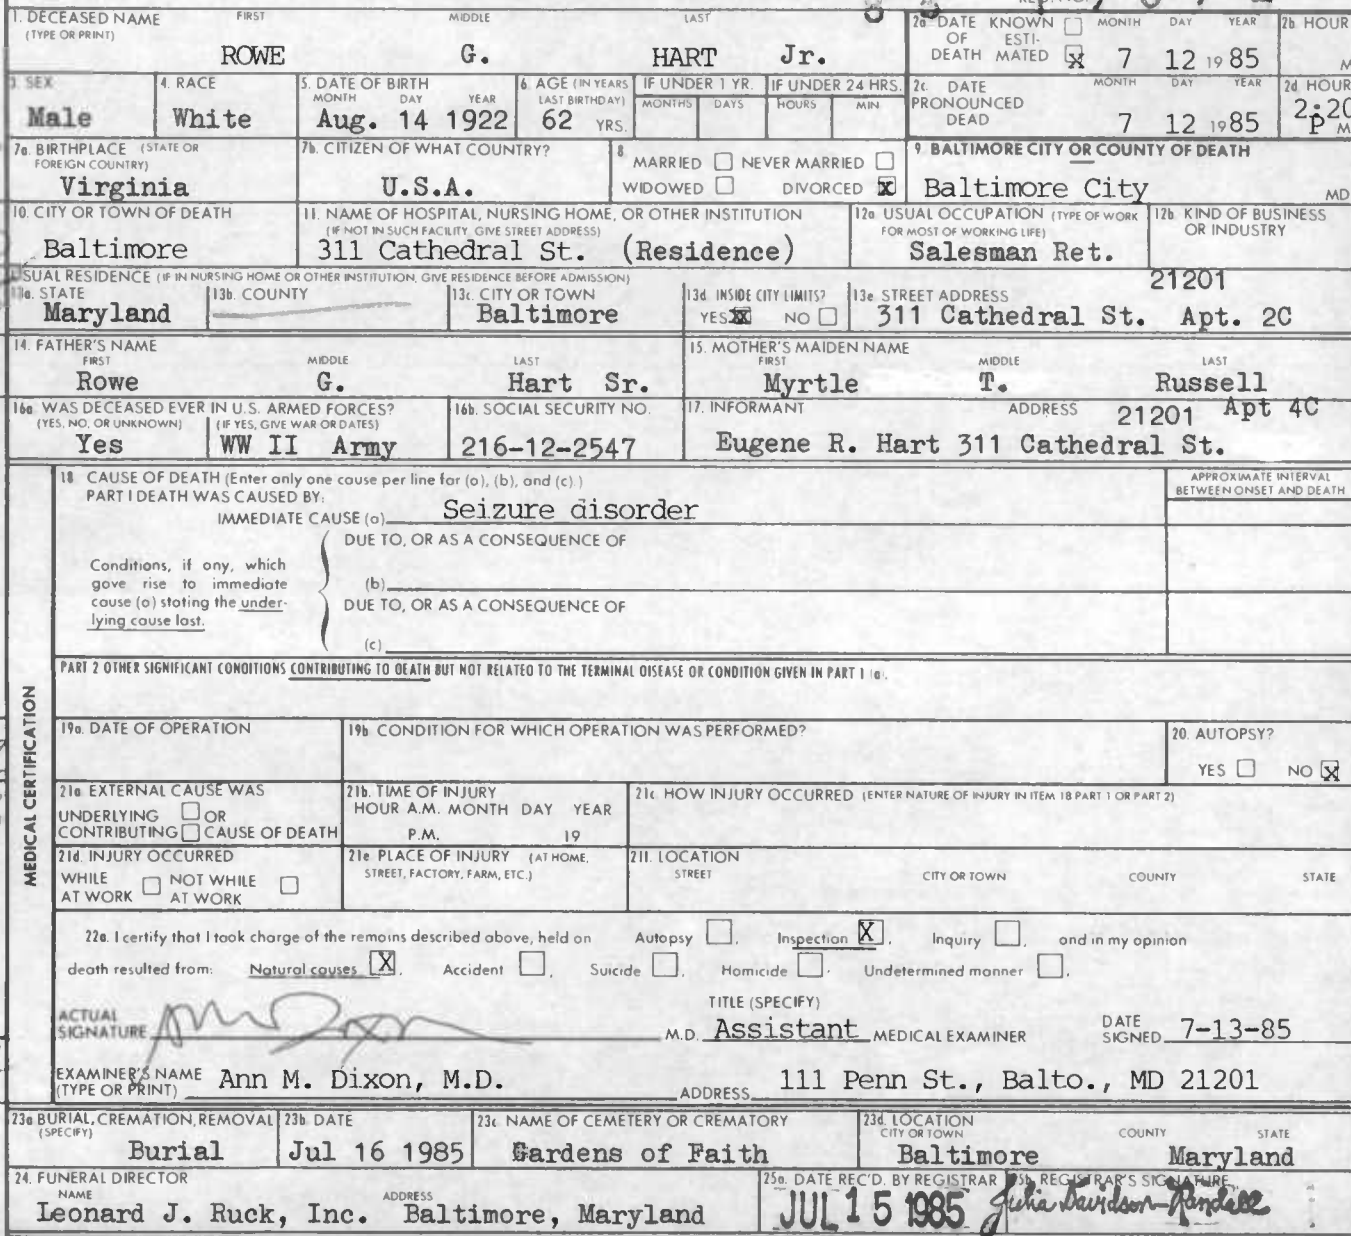 1. DECEASED NAME FIRST MIDDLE LAST
(TYPE OR PRINT)
ROWE G. HART Jr.
2a. DATE KNOWN OF ESTI- DEATH MATED X MONTH 7 DAY 12 YEAR 1985
2b. HOUR M
3. SEX Male
4. RACE White
5. DATE OF BIRTH MONTH DAY YEAR
Aug. 14 1922
6. AGE (IN YEARS LAST BIRTHDAY) 62 YRS.
IF UNDER 1 YR. MONTHS DAYS
IF UNDER 24 HRS. HOURS MIN
2c. DATE PRONOUNCED DEAD MONTH 7 DAY 12 YEAR 1985
2d. HOUR 2:20 P M
7a. BIRTHPLACE (STATE OR FOREIGN COUNTRY)
Virginia
7b. CITIZEN OF WHAT COUNTRY?
U.S.A.
8 MARRIED NEVER MARRIED
WIDOWED DIVORCED X
9. BALTIMORE CITY OR COUNTY OF DEATH
Baltimore City MD
10. CITY OR TOWN OF DEATH
Baltimore
11. NAME OF HOSPITAL, NURSING HOME, OR OTHER INSTITUTION
(IF NOT IN SUCH FACILITY, GIVE STREET ADDRESS)
311 Cathedral St. (Residence)
12a. USUAL OCCUPATION (TYPE OF WORK FOR MOST OF WORKING LIFE)
Salesman Ret.
12b. KIND OF BUSINESS OR INDUSTRY
USUAL RESIDENCE (IF IN NURSING HOME OR OTHER INSTITUTION, GIVE RESIDENCE BEFORE ADMISSION)
13a. STATE Maryland
13b. COUNTY
13c. CITY OR TOWN Baltimore
13d. INSIDE CITY LIMITS? YES X NO
13e. STREET ADDRESS 21201
311 Cathedral St. Apt. 2C
14. FATHER'S NAME FIRST MIDDLE LAST
Rowe G. Hart Sr.
15. MOTHER'S MAIDEN NAME FIRST MIDDLE LAST
Myrtle T. Russell
16a. WAS DECEASED EVER IN U.S. ARMED FORCES?
(YES, NO, OR UNKNOWN) (IF YES, GIVE WAR OR DATES)
Yes WW II Army
16b. SOCIAL SECURITY NO.
216-12-2547
17. INFORMANT ADDRESS 21201 Apt 4C
Eugene R. Hart 311 Cathedral St.
MEDICAL CERTIFICATION
18 CAUSE OF DEATH (Enter only one cause per line for (a), (b), and (c).)
PART I DEATH WAS CAUSED BY:
IMMEDIATE CAUSE (a) Seizure disorder
APPROXIMATE INTERVAL BETWEEN ONSET AND DEATH
DUE TO, OR AS A CONSEQUENCE OF
Conditions, if any, which
gave rise to immediate
cause (a) stating the under-
lying cause last.
(b)
DUE TO, OR AS A CONSEQUENCE OF
(c)
PART 2 OTHER SIGNIFICANT CONDITIONS CONTRIBUTING TO DEATH BUT NOT RELATED TO THE TERMINAL DISEASE OR CONDITION GIVEN IN PART 1 (a).
19a. DATE OF OPERATION
19b. CONDITION FOR WHICH OPERATION WAS PERFORMED?
20. AUTOPSY?
YES NO X
21a. EXTERNAL CAUSE WAS
UNDERLYING OR
CONTRIBUTING CAUSE OF DEATH
21b. TIME OF INJURY
HOUR A.M. MONTH DAY YEAR
P.M. 19
21c. HOW INJURY OCCURRED (ENTER NATURE OF INJURY IN ITEM 18 PART 1 OR PART 2)
21d. INJURY OCCURRED
WHILE AT WORK NOT WHILE AT WORK
21e. PLACE OF INJURY (AT HOME, STREET, FACTORY, FARM, ETC.)
21f. LOCATION
STREET CITY OR TOWN COUNTY STATE
22a. I certify that I took charge of the remains described above, held an Autopsy, Inspection X, Inquiry, and in my opinion
death resulted from: Natural causes X, Accident, Suicide, Homicide, Undetermined manner.
ACTUAL SIGNATURE M.D.
TITLE (SPECIFY) Assistant MEDICAL EXAMINER
DATE SIGNED 7-13-85
EXAMINER'S NAME (TYPE OR PRINT) Ann M. Dixon, M.D.
ADDRESS 111 Penn St., Balto., MD 21201
23a. BURIAL, CREMATION, REMOVAL (SPECIFY)
Burial
23b. DATE
Jul 16 1985
23c. NAME OF CEMETERY OR CREMATORY
Gardens of Faith
23d. LOCATION CITY OR TOWN COUNTY STATE
Baltimore Maryland
24. FUNERAL DIRECTOR
NAME ADDRESS
Leonard J. Ruck, Inc. Baltimore, Maryland
25a. DATE REC'D. BY REGISTRAR
JUL 15 1985
25b. REGISTRAR'S SIGNATURE
Julia Davidson-Randall